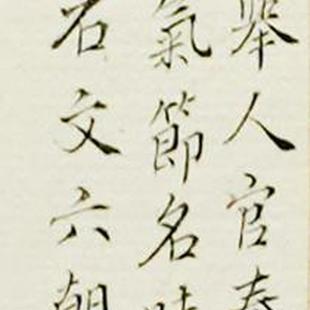 舉人官春
氣節名時
名文六朝